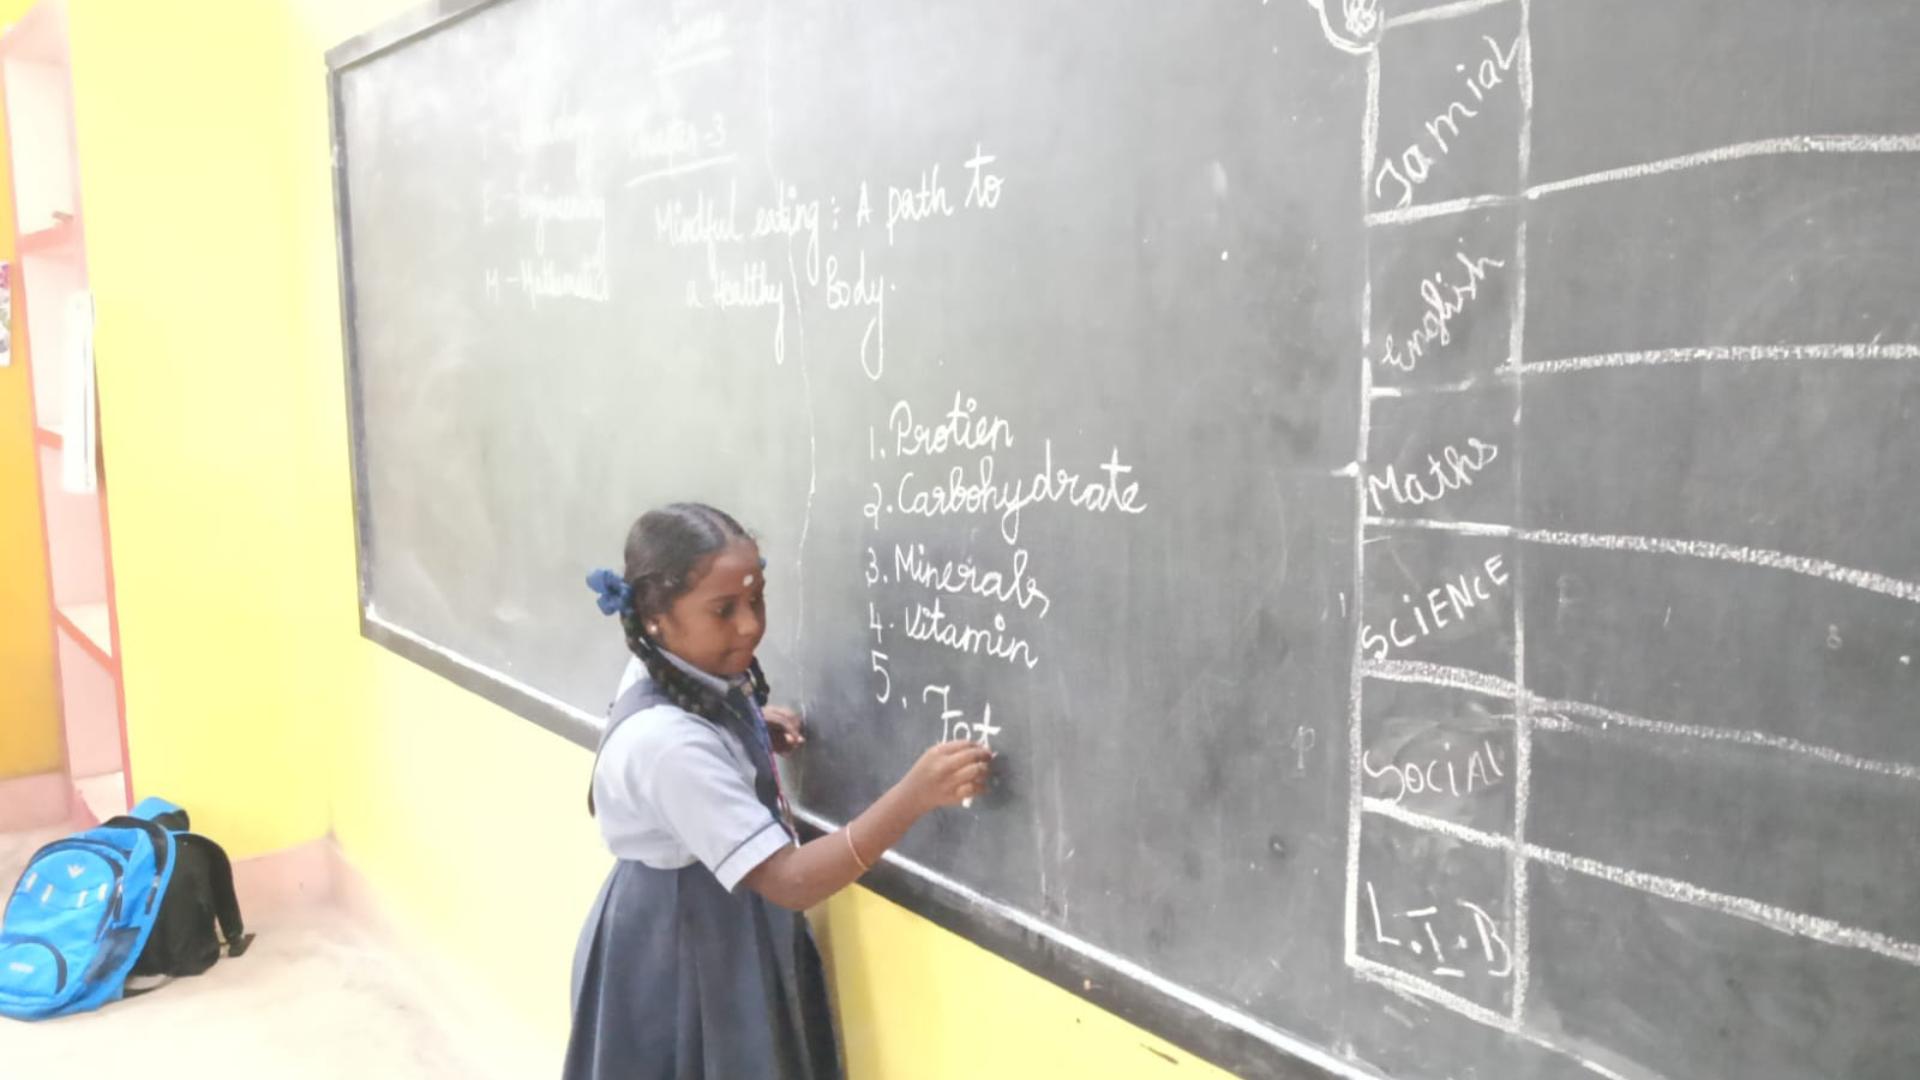 Science
Chapter-3
E - Engineering
M - Mathematics
Mindful eating : A path to
a Healthy Body.
1. Protien
2. Carbohydrate
3. Minerals
4. Vitamin
5. Fat
Tamial
English
Maths
SCIENCE
SOCIAL
L.I.B